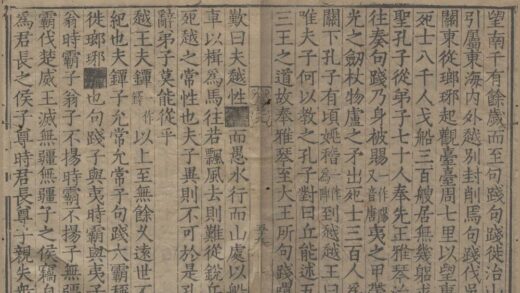 望南千有餘歲而至句踐句踐徙治山
引屬東海內外越別封削馬句踐伐吳
關東從瑯琊起觀臺臺周七里以望東
死士八千人戈船三百艘居無幾躬求
聖孔子從弟子七十人奉先王雅琴治
往奏句踐乃身被賜夷之甲帶
光之劒杖物盧之矛出死士三百人為
關下孔子有頃姚稽到越越王曰
唯夫子何以教之孔子對曰丘能述五
三王之道故奉雅琴至大王所句踐喟
歎曰夫越性而愚水行而山處以船
車以楫為馬往若飄風去則難從銳兵
死越之常性也夫子異則不可於是孔
辭弟子莫能從乎
越王夫鐔以上至無餘乆遠世不
紀也夫鐔子允常允常子句踐大霸
徙瑯琊也句踐子與夷時霸與夷子
翁時霸子翁子不揚時霸不揚子無彊
霸伐楚威王滅無彊無彊子之侯竊自
為君長之侯子尊時君長尊子親失衆